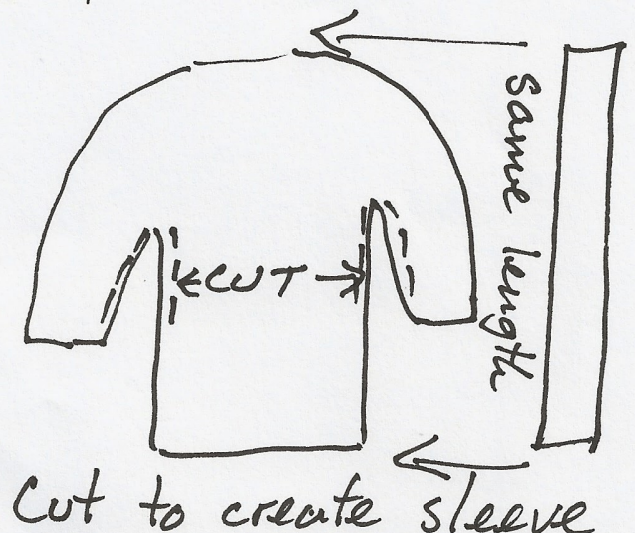 same length
CUT
Cut to create sleeve